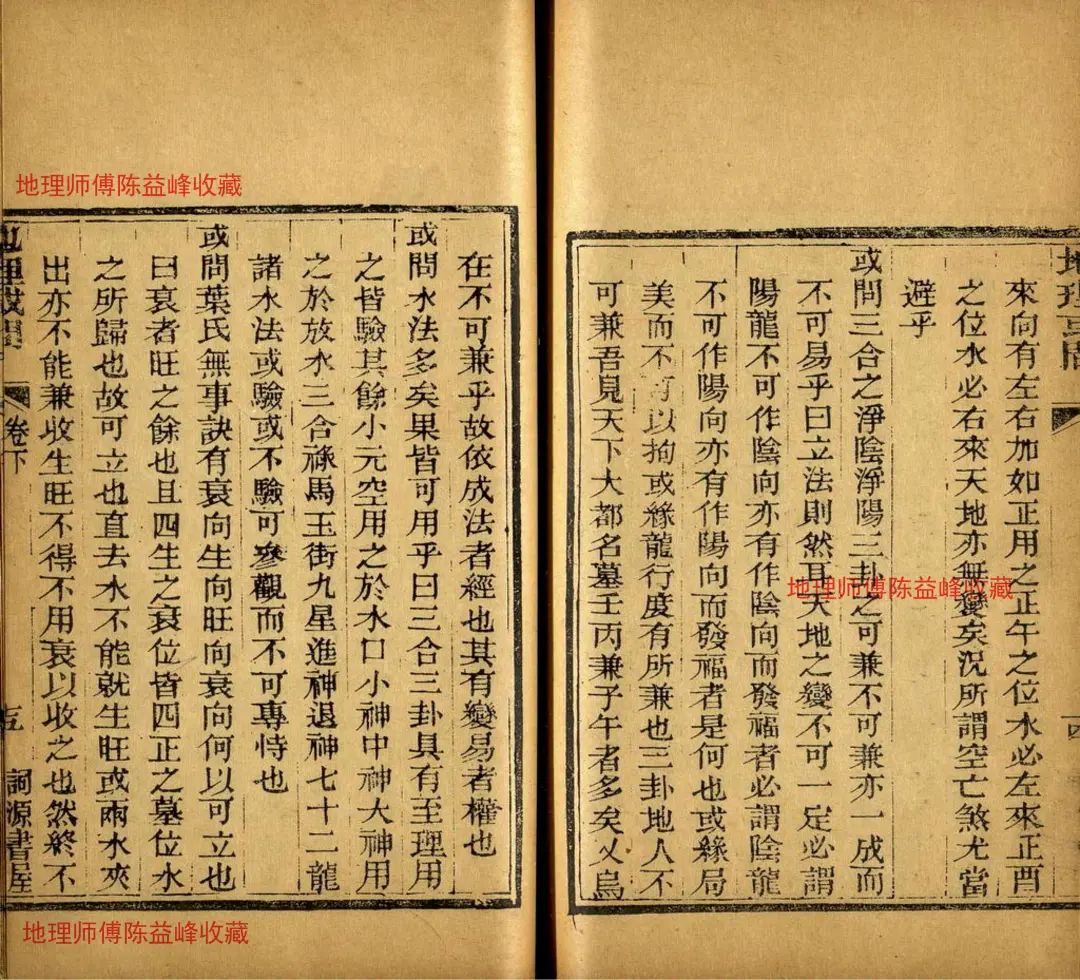 地理或問
四
來向有左右加如正用之正午之位水必左來正酉
之位水必右來天地亦無變矣況所謂空亡煞尤當
避乎
或問三合之淨陰淨陽三卦之可兼不可兼亦一成而
不可易乎曰立法則然耳天地之變不可一定必謂
陽龍不可作陰向亦有作陰向而發福者必謂陰龍
不可作陽向亦有作陽向而發福者是何也或緣局
美而不可以拘或緣龍行度有所兼也三卦地人不
可兼吾見天下大都名墓壬丙兼子午者多矣又烏
在不可兼乎故依成法者經也其有變易者權也
或問水法多矣果皆可用乎曰三合三卦具有至理用
之皆驗其餘小元空用之於水口小神中神大神用
之於放水三合祿馬玉街九星進神退神七十二龍
諸水法或驗或不驗可參觀而不可專恃也
或問葉氏無事訣有衰向生向旺向衰向何以可立也
曰衰者旺之餘也且四生之衰位皆四正之墓位水
之所歸也故可立也直去水不能就生旺或兩水夾
出亦不能兼收生旺不得不用衰以收之也然終不
地理或問 卷下 五 詞源書屋
地理师傅陈益峰收藏
地理师傅陈益峰收藏
地理师傅陈益峰收藏